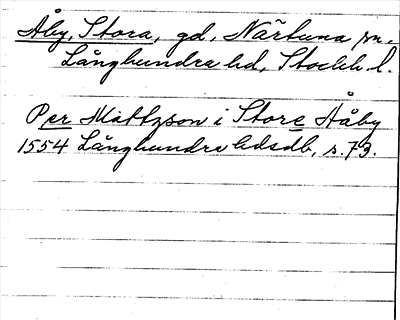 Åby, Stora, gd, Närtuna sn,
Långhundra hd, Stockh. l.
Per Mattzson i Store Ååby
1554 Långhundra hdsdb, s. 73.